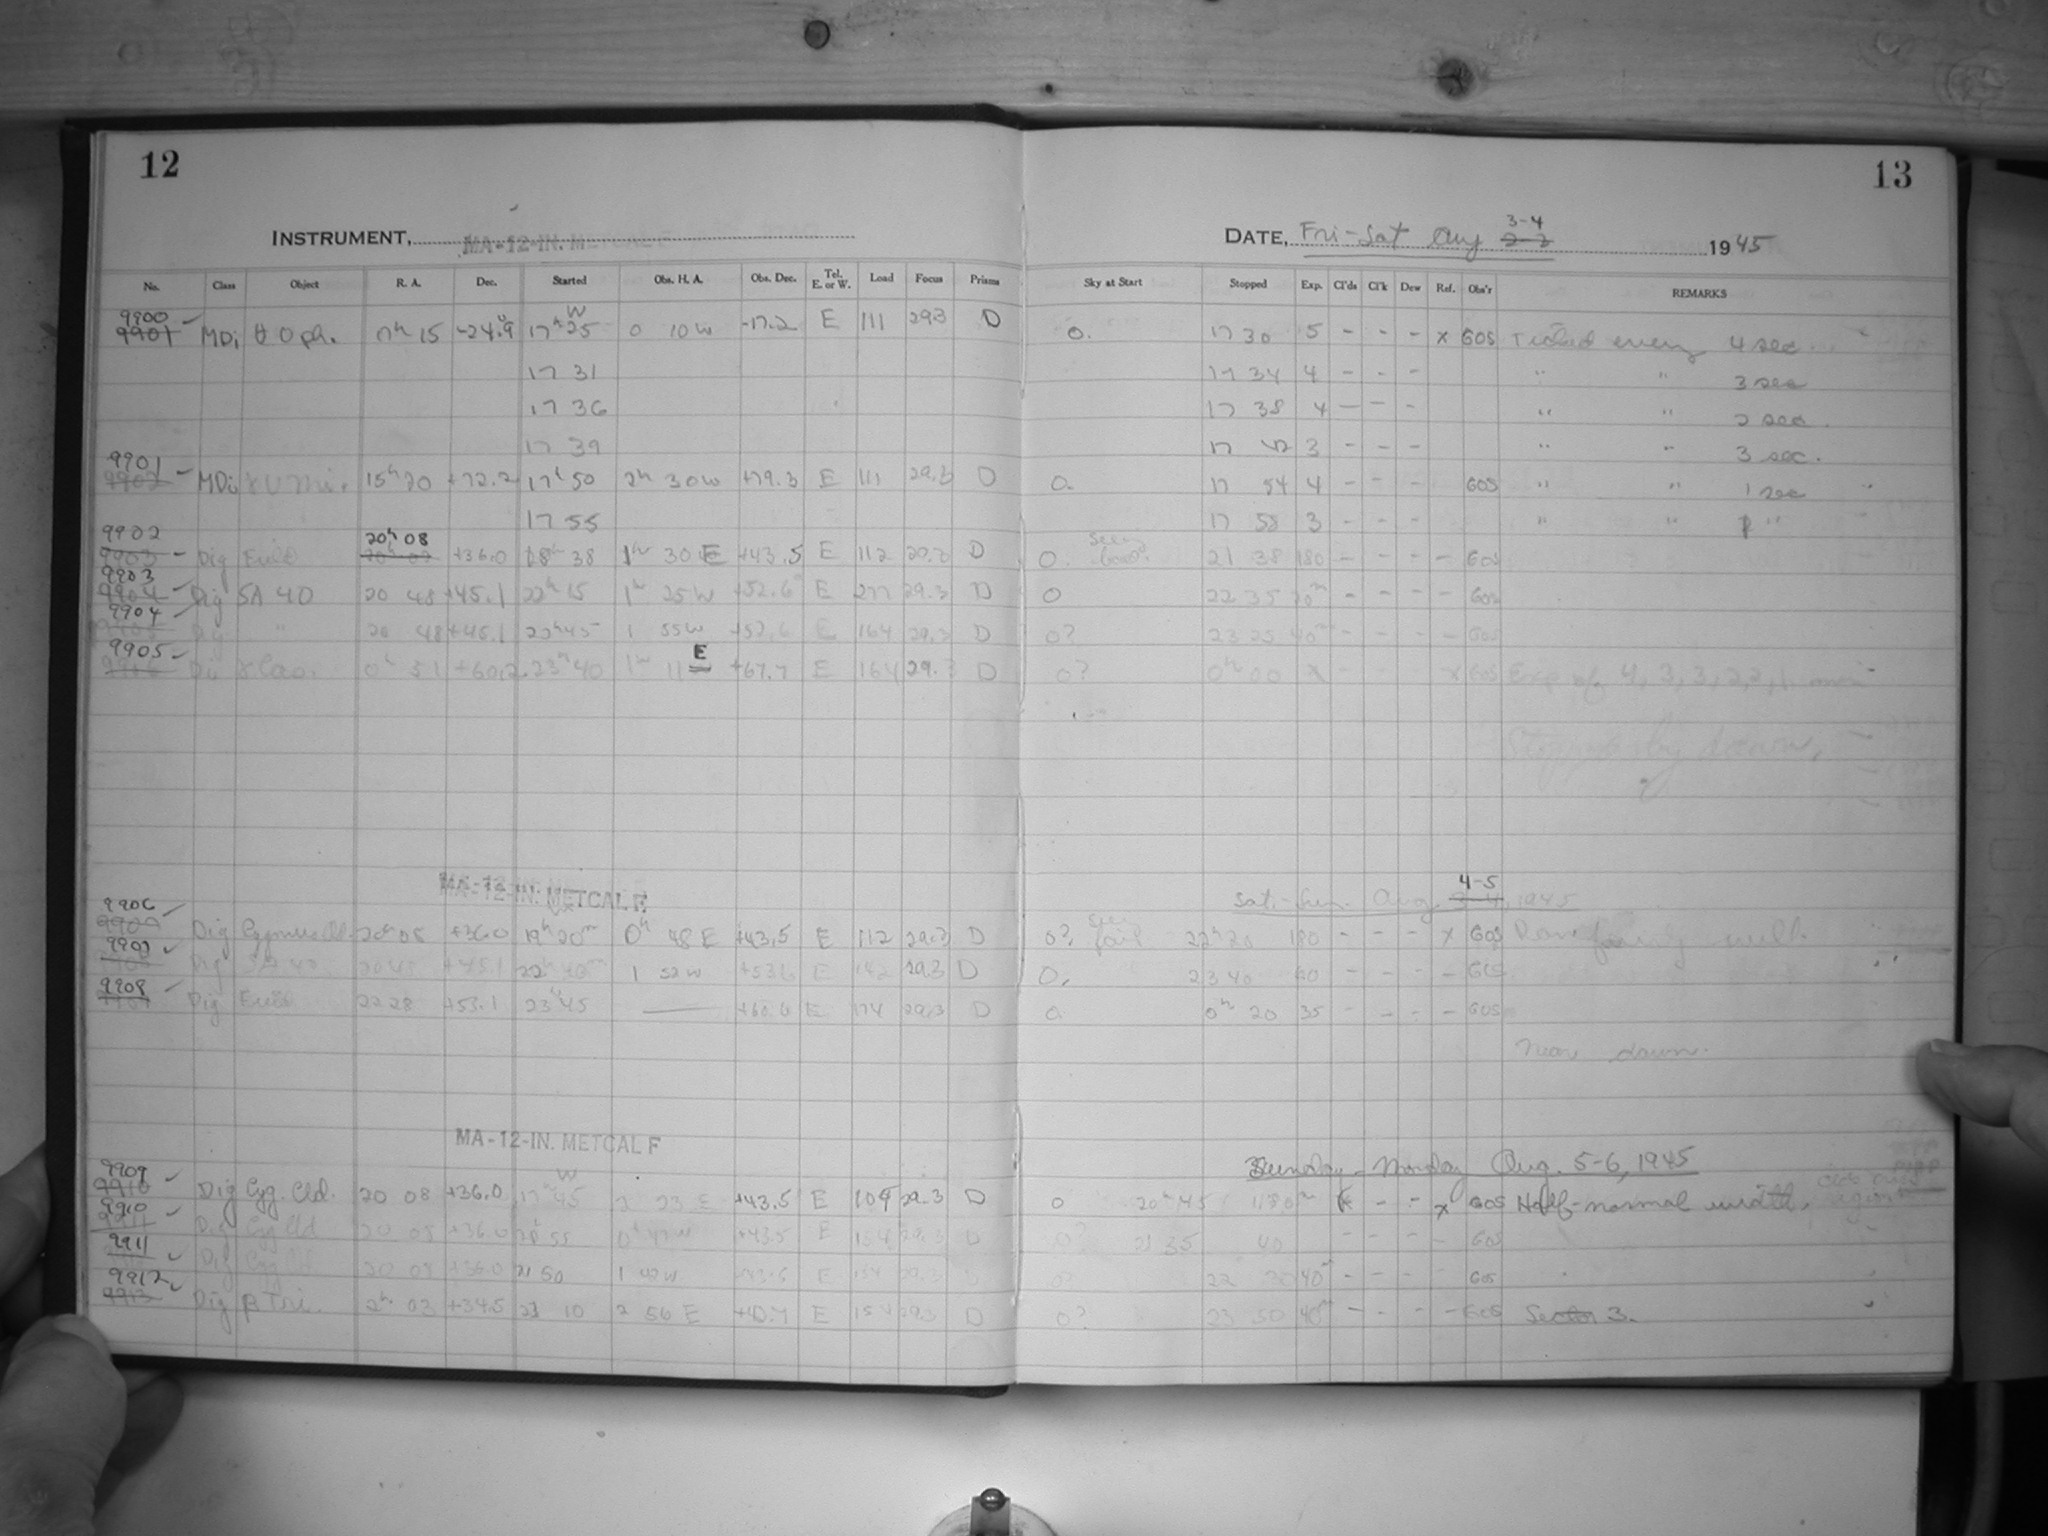 12
13
INSTRUMENT, MA-12-IN. METCALF
DATE, Fri-Sat Aug 3-4 2-3 1945
No. Class Object R. A. Dec. Started Obs. H. A. Obs. Dec. Tel. E. or W. Load Focus Prisms Sky at Start Stopped Exp. Cl'ds Cl'k Dew Ref. Obs'r REMARKS
9900
9901 MDi θ Oph. 17h 15 -24.9 17h 25 W 0 10 W -17.2 E 111 293 D 0. 17 30 5 - - - x GOS every 4 sec.
17 31 17 34 4 - - - " " 3 sec
17 36 17 38 4 - - - " " 2 sec.
17 39 17 42 3 - - - " " 3 sec.
9901
9902 MDi γ U Mi. 15h 20 +72.2 17h 50 2h 30 W +79.3 E 111 29.3 D 0. 17 54 4 - - - GOS " " 1 sec
17 55 17 58 3 - - - " " "
9902 20h 08
9903 Dig Field +36.0 18h 38 1h 30 E +43.5 E 112 29.3 D 0. Seeing Good. 21 38 180 - - - - GOS
9903
9904 Dig SA 40 20 48 +45.1 22h 15 1h 25 W +52.6 E 277 29.3 D 0 22 35 20m - - - - GOS
9904
Dig " 20 48 +45.1 22h 45 1 55 W +52.6 E 164 29.3 D 0? 23 25 40m - - - - GOS
9905
9906 Di γ Cas. 0h 51 +60.2 23h 40 1h 11 E +67.7 E 164 29.3 D 0? 0h 00 x - - - x GOS Exp of 4, 3, 3, 2, 2, 1 min
Stopped by dawn.
MA-12-IN. METCALF
Sat.-Sun. Aug. 4-5 3-4, 1945
9906
Dig Cygnus Cld. 20h 08 +36.0 19h 20m 0h 48 E +43.5 E 112 29.3 D 0? fair 22h 20 180 - - - x GOS fairly well.
9907
Dig SA 40 20 48 +45.1 22h 40m 1 52 W E 142 29.3 D 0. 23 40 60 - - - - GOS
9908
Dig Field 22 28 +53.1 23h 45 +60.6 E 174 29.3 D 0 0h 20 35 - - - - GOS
Near dawn.
MA-12-IN. METCALF
Sunday - Monday Aug. 5-6, 1945
9909
9910 Dig Cyg. Cld. 20 08 +36.0 17h 45 W 2 23 E +43.5 E 109 29.3 D 0 20h 45 180m - - x GOS Half-normal width.
9910
9911 Dig Cyg Cld 20 08 +36.0 20 55 0h 47 W +43.5 E 154 29.3 D 0? 21 35 40 - - - - GOS
9911
Dig Cyg Cld 20 08 +36.0 21 50 1 W +43.5 E 154 29.3 D 0? 22 30 40m - - - GOS
9912
9913 Dig β Tri. 2h 03 +34.5 23 10 2 56 E E 154 29.3 D 0? 23 50 40m - - - - GOS Sector 3.